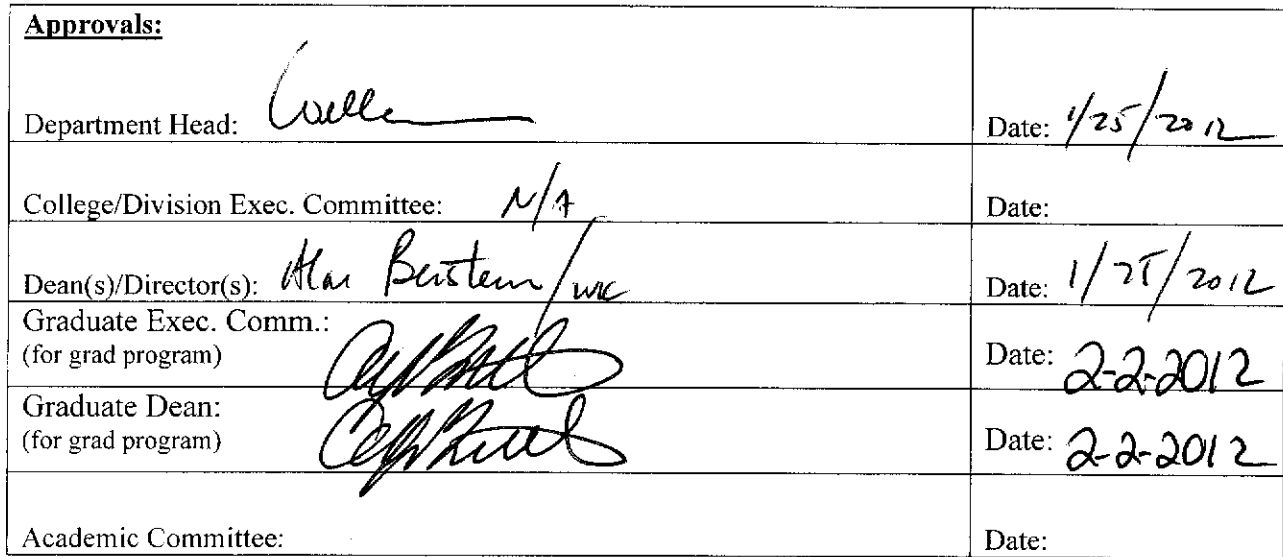 Approvals:
Department Head: Date: 1/25/2012
College/Division Exec. Committee: N/A Date:
Dean(s)/Director(s): Alan /wc Date: 1/25/2012
Graduate Exec. Comm.:
(for grad program) Date: 2-2-2012
Graduate Dean:
(for grad program) Date: 2-2-2012
Academic Committee: Date: